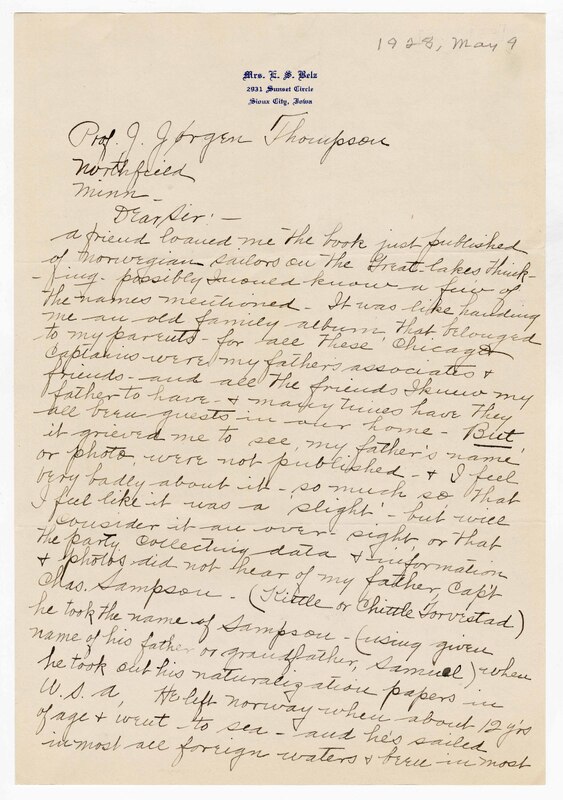 1928, May 9
Mrs. E. S. Belz
2931 Sunset Circle
Sioux City, Iowa
Prof. J. Jørgen Thompson
Northfield
Minn -
Dear Sir: -
a friend loaned me the book just published
of Norwegian sailors on the Great-lakes think-
-ing - possibly I would know a few of
the names mentioned - It was like handing
me an old family album that belonged
to my parents - for all these Chicago
Captains were my fathers associates &
friends - and all the friends I know my
father to have - & many times have they
all been guests in our home - But
it grieved me to see my father's name
or photo were not published - & I feel
very badly about it - so much so that
I feel like it was a 'slight' - but will
consider it an over-sight or that
the party collecting data & information
& photos did not hear of my father, Cap't
Chas. Sampson - (Kittle or Chittle Torvestad)
he took the name of Sampson - (using given
name of his father or grandfather, Samuel) when
he took out his naturalization papers in
U.S.A. He left Norway when about 12 y'rs
of age & went - to sea - and he's sailed
in most all foreign waters & been in most